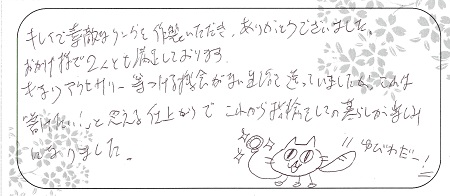 キレイで素敵なリングを作製いただき、ありがとうございました。
おかげ様で2人とも満足しております。
あまりアクセサリー着つける機会がない生活を送っていましたが、これは
"着けたい!"と思える仕上がりで これから夫婦としての暮らしが楽しみ
になりました。
ゆびわだー!